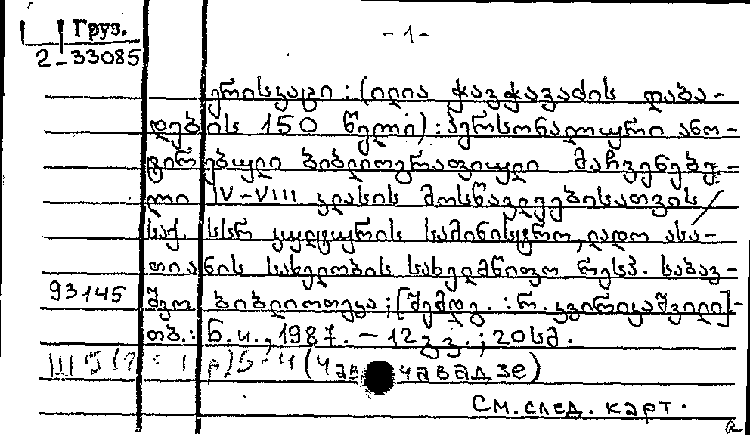 Груз. - 1 -
2-33085
ერისკაცი : (ილია ჭავჭავაძის დაბა-
დების 150 წელი) : პერსონალური ანო-
ტირებული ბიბლიოგრაფიული მაჩვენებე-
ლი IV-VIII კლასის მოსწავლეებისათვის /
საქ. სსრ კულტურის სამინისტრო, იაღო ასა-
თიანის სახელობის სახელმწიფო რესპ. საბავ-
93145 შვო ბიბლიოთეკა ; [შემდგ. : რ. კვირიკაშვილი]. -
თბ. : ნ. ი., 1987. - 12 გვ. ; 20 სმ.
(Чавчавадзе)
См. след. карт.